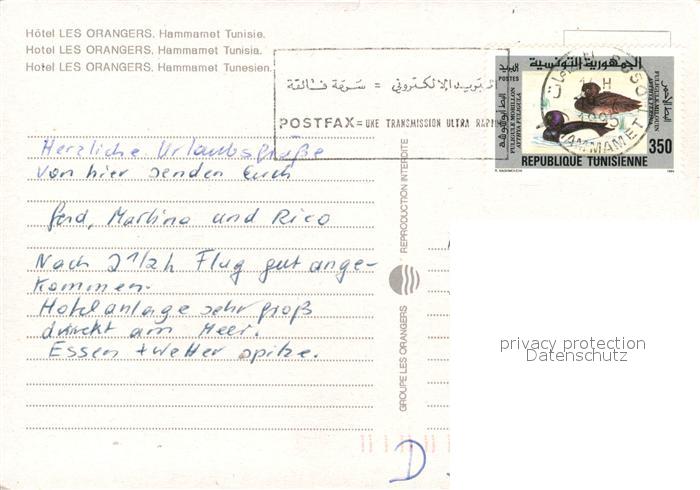 Hôtel LES ORANGERS. Hammamet Tunisie.
Hotel LES ORANGERS. Hammamet Tunisia.
Hotel LES ORANGERS. Hammamet Tunesien.
تبريد الالكتروني = سرعة فائقة
POSTFAX = UNE TRANSMISSION ULTRA RAP
الجمهورية التونسية
POSTES
FULIGULE MORILLON
AYTHYA FULIGULA
FULIGULE MILOUIN
1995
HAMMAMET
350
REPUBLIQUE TUNISIENNE
Herzliche Urlaubsgrüße
von hier senden Euch
Gerd, Martina und Rico
Nach 2 1/2 h Flug gut ange-
kommen.
Hotelanlage sehr groß
direkt am Meer.
Essen + Wetter spitze.
REPRODUCTION INTERDITE
GROUPE LES ORANGERS
D
privacy protection
Datenschutz